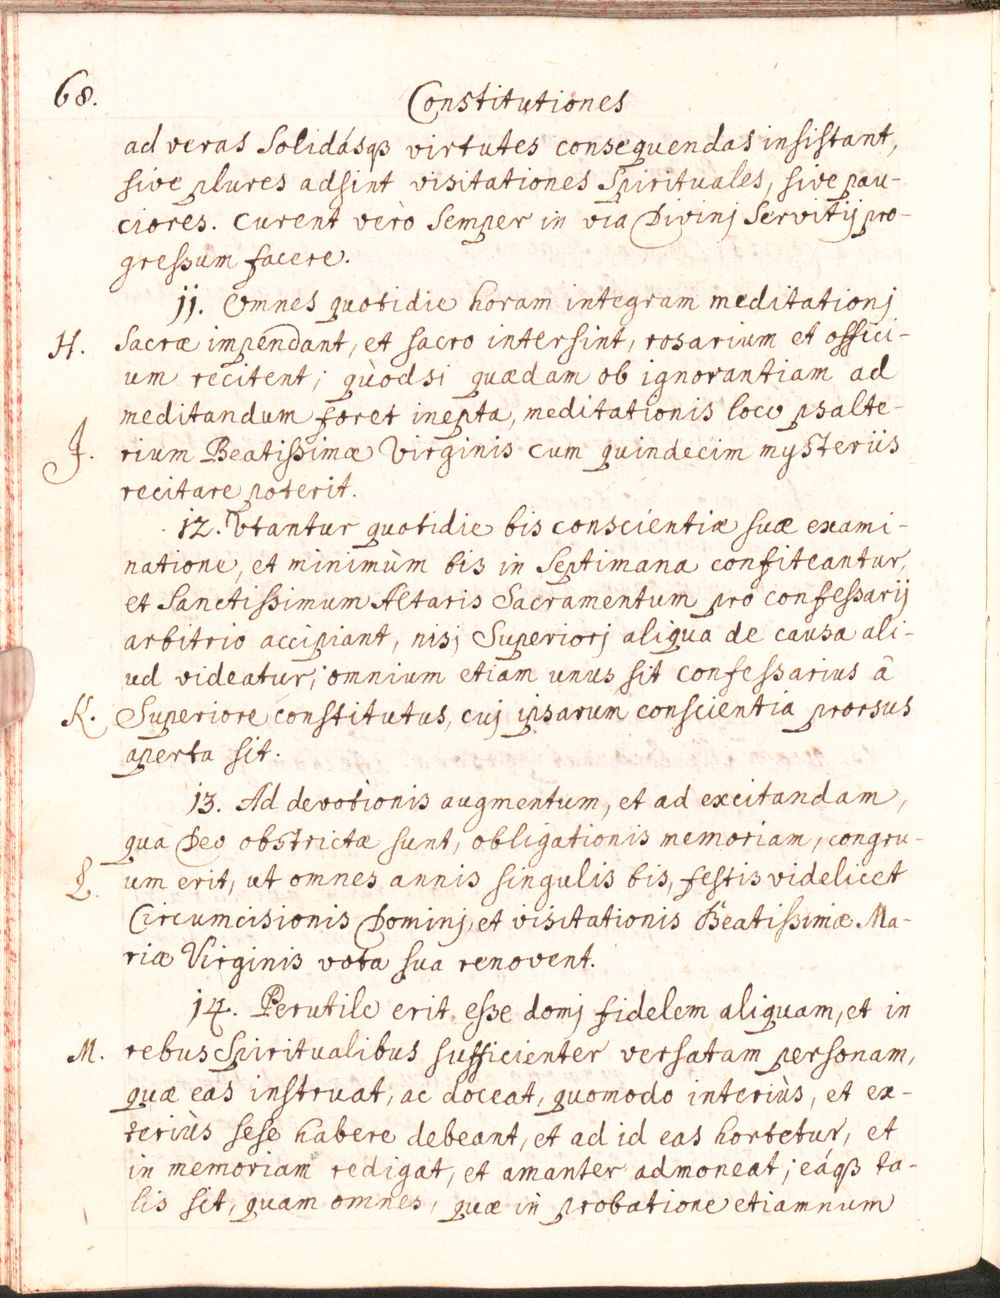 68.
Constitutiones
ad veras solidásqꝫ virtutes consequendas insistant,
sive plures adsint visitationes Spirituales, sive pau-
ciores. Curent verò semper in via Divinj Servitij pro-
gressum facere.
11. Omnes quotidie horam integram meditationj
H. Sacræ impendant, et sacro intersint, rosarium et offici-
um recitent; quòdsi quædam ob ignorantiam ad
meditandum foret inepta, meditationis loco psalte-
J. rium Beatissimæ Virginis cum quindecim mysteriis
recitare poterit.
12. Vtantur quotidie bis conscientiæ suæ exami-
natione, et minimùm bis in Septimana confiteantur,
et Sanctissimum Altaris Sacramentum pro confessarij
arbitrio accipiant, nisj Superiorj aliqua de causa ali-
ud videatur; omnium etiam unus sit confessarius â
K. Superiore constitutus, cuj ipsarum conscientia prorsus
aperta sit.
13. Ad devotionis augmentum, et ad excitandam,
quâ Deo obstrictæ sunt, obligationis memoriam, congru-
L. um erit, ut omnes annis singulis bis, festis videlicet
Circumcisionis Dominj, et visitationis Beatissimæ Ma-
riæ Virginis vota sua renovent.
14. Perutile erit esse domj fidelem aliquam, et in
M. rebus Spiritualibus sufficienter versatam personam,
quæ eas instruat, ac doceat, quomodo interiùs, et ex-
teriùs sese habere debeant, et ad id eas hortetur, et
in memoriam redigat, et amanter admoneat; eáqꝫ ta-
lis sit, quam omnes, quæ in probatione etiamnum